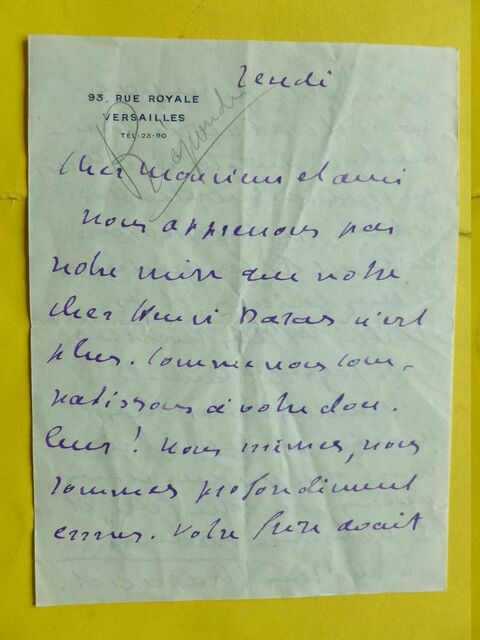 lundi
93, RUE ROYALE
VERSAILLES
TÉL: 23-90
Répondu
Cher Monsieur et ami
nous apprenons par
notre mère que votre
cher Henri n'est
plus. Comme nous com-
patissons à votre dou-
leur ! nous mêmes, nous
sommes profondément
émus. Votre frère avait